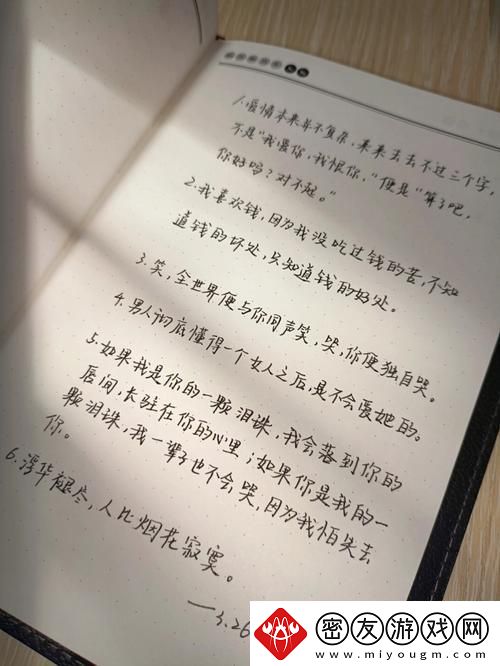 1.爱情本来并不复杂,来来去去不过三个字,
不是“我爱你,我恨你,”便是“算了吧,
你好吗?对不起。”
2.我喜欢钱,因为我没吃过钱的苦,不知
道钱的坏处,只知道钱的好处。
3.笑,全世界便与你同声笑,哭,你便独自哭。
4.男人彻底懂得一个女人之后,是不会爱她的。
5.如果我是你的一颗泪珠,我会落到你的
唇间,长驻在你的心里;如果你是我的一
颗泪珠,我一辈子也不会哭,因为我怕失去
你。
6.浮华褪尽,人比烟花寂寞。
——3.26
密友游戏网
www.miyougm.com